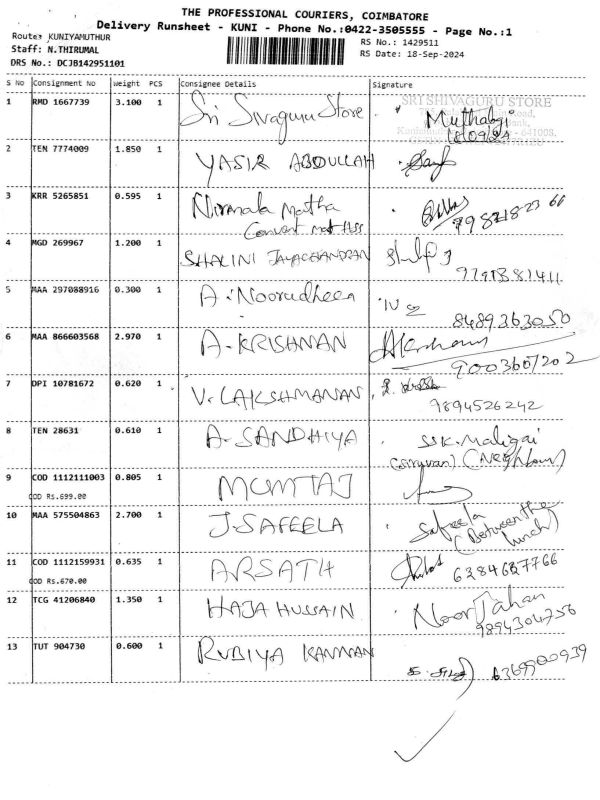 THE PROFESSIONAL COURIERS, COIMBATORE
Delivery Runsheet - KUNI - Phone No.:0422-3505555 - Page No.:1
Route: KUNIYAMUTHUR
RS No.: 1429511
Staff: N.THIRUMAL
RS Date: 18-Sep-2024
DRS No.: DCJB142951101
S No Consignment No Weight PCS Consignee Details Signature
SRI SHIVAGURU STORE
1 RMD 1667739 3.100 1 Sri Sivaguru Store
2 TEN 7774009 1.850 1 YASIR ABDULLAH
3 KRR 5265851 0.595 1 Nirmala Matha
Convent
4 MGD 269967 1.200 1 SHALINI JAYACHANDRAN
5 MAA 297088916 0.300 1 A. Noorudheen
8489363050
6 MAA 866603568 2.970 1 A. KRISHNAN
7 DPI 10781672 0.620 1 V. LAKSHMANAN
9894526242
8 TEN 28631 0.610 1 A. SANDHIYA S.S.K. Maligai
(Neighbour)
9 COD 1112111003 0.805 1 MUMTAJ
COD Rs.699.00
10 MAA 575504863 2.700 1 J. SAFEELA Safeela
11 COD 1112159931 0.635 1 ARSATH
COD Rs.670.00
12 TCG 41206840 1.350 1 HAJA HUSSAIN Noor Jahan
9894304756
13 TUT 904730 0.600 1 RUBIYA KANMAN